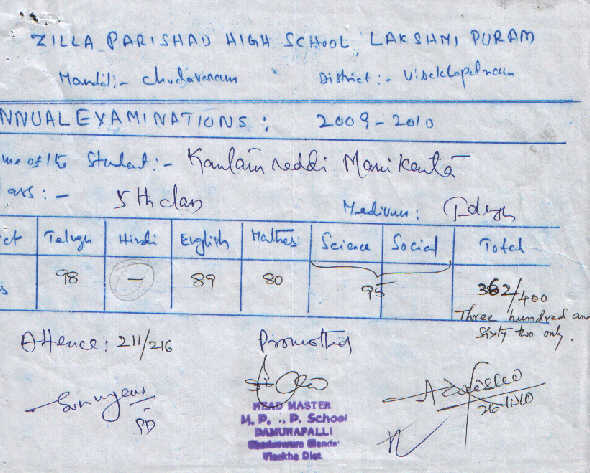 ZILLA PARISHAD HIGH SCHOOL, LAKSHMI PURAM
Mandal:- Chodavaram District:- Visakhapatnam
NNUAL EXAMINATIONS: 2009-2010
me of the Student:- Kantamreddi Manikanta
ass:- 5th class Medium:
ct Telugu Hindi English Mathes Science Social Total
s 98 — 89 80 95 362/400
Three hundred and
Sixty two only.
Attence: 211/216 Promotted
HEAD MASTER
M. P. .. P. School
DAMURAPALLI
Visakha Dist